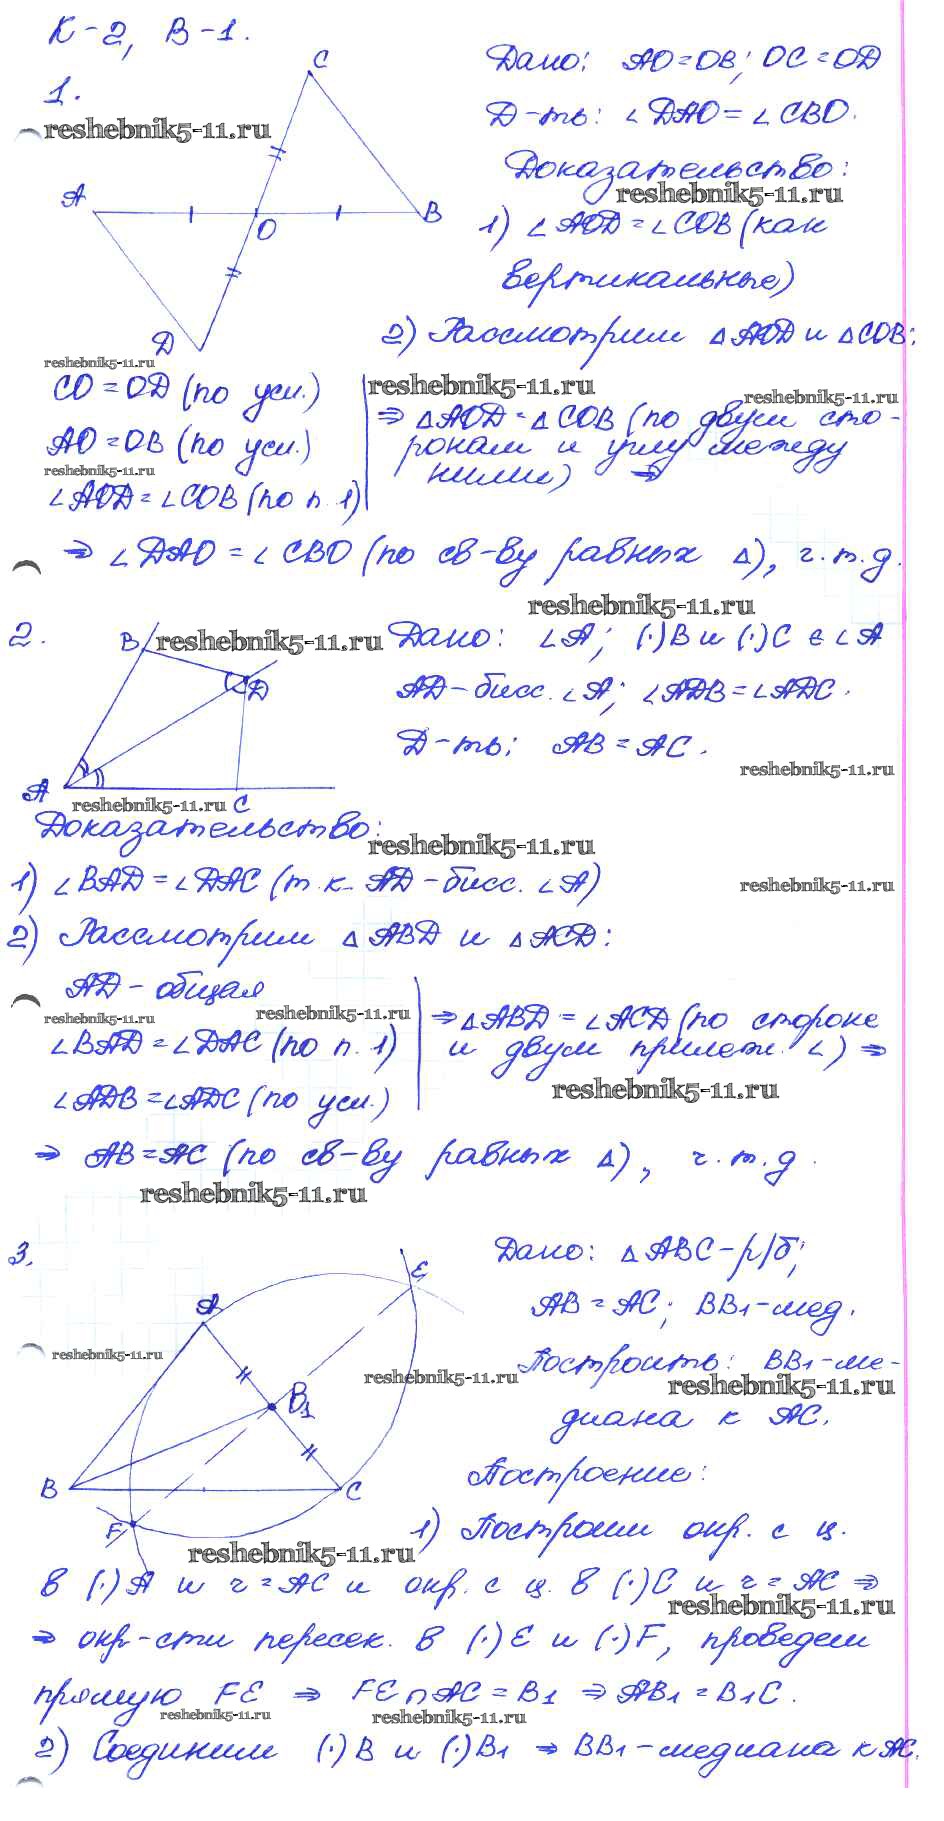 К-2, В-1.
1.
reshebnik5-11.ru
C
A
O
B
D
Дано: AO=OB; OC=OD
Д-ть: ∠DAO=∠CBO.
Доказательство:
reshebnik5-11.ru
1) ∠AOD=∠COB (как
вертикальные)
2) Рассмотрим △AOD и △COB:
reshebnik5-11.ru
CO=OD (по усл.)
reshebnik5-11.ru
reshebnik5-11.ru
⇒ △AOD=△COB (по двум сто-
AO=OB (по усл.)
ронам и углу между
reshebnik5-11.ru
ними) ⇒
∠AOD=∠COB (по п.1)
⇒ ∠DAO=∠CBO (по св-ву равных △), ч.т.д.
reshebnik5-11.ru
2.
B
reshebnik5-11.ru
D
A
C
reshebnik5-11.ru
Дано: ∠A; (·)B и (·)C ∈ ∠A
AD-бисс. ∠A; ∠ADB=∠ADC.
Д-ть: AB=AC.
reshebnik5-11.ru
Доказательство:
reshebnik5-11.ru
1) ∠BAD=∠DAC (т.к. AD-бисс. ∠A)
reshebnik5-11.ru
2) Рассмотрим △ABD и △ACD:
AD-общая
reshebnik5-11.ru
reshebnik5-11.ru
⇒ △ABD=∠ACD (по стороне
∠BAD=∠DAC (по п.1)
и двум прилеж. ∠) ⇒
reshebnik5-11.ru
∠ADB=∠ADC (по усл.)
⇒ AB=AC (по св-ву равных △), ч.т.д.
reshebnik5-11.ru
3.
E
A
reshebnik5-11.ru
B1
B
C
F
reshebnik5-11.ru
Дано: △ABC-р/б;
AB=AC; BB1-мед.
reshebnik5-11.ru
Построить: BB1-ме-
reshebnik5-11.ru
диана к AC.
Построение:
1) Построим окр. с ц.
в (·)A и r=AC и окр. с ц. в (·)C и r=AC ⇒
reshebnik5-11.ru
⇒ окр-сти пересек. в (·)E и (·)F, проведем
прямую FE ⇒ FE∩AC=B1 ⇒ AB1=B1C.
reshebnik5-11.ru
reshebnik5-11.ru
2) Соединим (·)B и (·)B1 ⇒ BB1-медиана к AC.